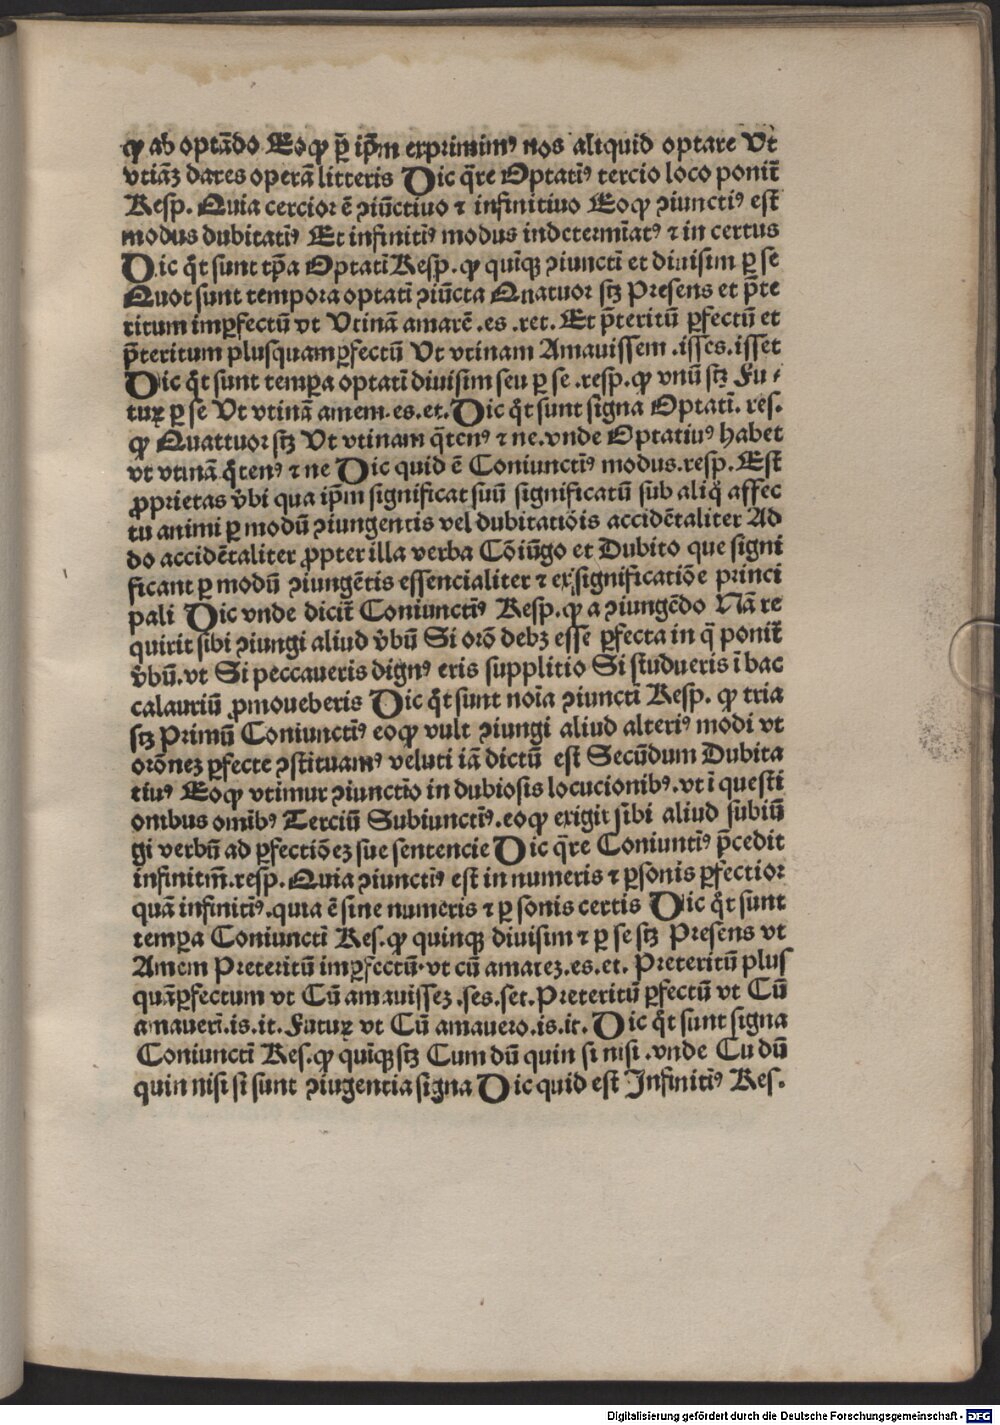 ꝙ ab optādo Eoqꝫ ꝑ ip̄m exprimimꝰ nos aliquid optare Vt
vtiāꝫ dares operā litteris Dic q̄re Optatiꝰ tercio loco ponit̄
Resp. Quia cercior ē ꝯiūctiuo ⁊ infinitiuo Eoꝙ ꝯiunctiꝰ est
modus dubitatiꝰ Et infinitiꝰ modus indetermīatꝰ ⁊ in certus
Dic q̄t sunt tp̄a Optati Resp. ꝙ quīqꝫ ꝯiuncti et diuisim ꝑ se
Quot sunt tempora optati ꝯiūcta Quatuor stꝫ Presens et p̄te
ritum imꝑfectū vt Vtinā amarē .es .ret. Et p̄teritū ꝑfectū et
p̄teritum plusquamꝑfectū Vt vtinam Amauissem .isses.isset
Dic q̄t sunt temꝑa optati diuisim seu ꝑ se .resp. ꝙ vnū stꝫ Fu⸗
tuꝝ ꝑ se Vt vtinā amem.es.et. Dic q̄t sunt signa Optati. res.
ꝙ Quattuor stꝫ Vt vtinam q̄tenꝰ ⁊ ne.vnde Optatiuꝰ habet
vt vtinā q̄tenꝰ ⁊ ne Dic quid ē Coniunctiꝰ modus.resp. Est
ꝓprietas v̄bi qua ip̄m significat suū significatū sub aliq̄ affec
tu animi ꝑ modū ꝯiungentis vel dubitatiōis accidētaliter Ad
do accidētaliter ꝓpter illa verba Cōiūgo et Dubito que signi
ficant ꝑ modū ꝯiungētis essencialiter ⁊ ex significatiōe princi
pali Dic vnde dicit̄ Coniunctiꝰ Resp. ꝙ a ꝯiungēdo Nā re
quirit sibi ꝯiungi aliud v̄bū Si orō debꝫ esse ꝑfecta in q̄ ponit̄
v̄bū.vt Si peccaueris dignꝰ eris supplitio Si studueris ī bac
calauriū ꝓmoueberis Dic q̄t sunt noīa ꝯiuncti Resp. ꝙ tria
stꝫ Primū Coniunctiꝰ eoꝙ vult ꝯiungi aliud alteriꝰ modi vt
orōneꝫ ꝑfecte ꝯstituamꝰ veluti iā dictū est Secūdum Dubita
tiuꝰ Eoꝙ vtimur ꝯiunctio in dubiosis locucionibꝰ.vt ī questi
onibus omībꝰ Terciū Subiunctiꝰ.eoꝙ exigit sibi aliud subiū
gi verbū ad ꝑfectiōeꝫ sue sentencie Dic q̄re Coniuntiꝰ p̄cedit
infinitm̄.resp. Quia ꝯiunctiꝰ est in numeris ⁊ ꝑsonis ꝑfectior
quā infinitiꝰ.quia ē sine numeris ⁊ ꝑ sonis certis Dic q̄t sunt
temꝑa Coniuncti Res. ꝙ quinqꝫ diuisim ⁊ ꝑ se stꝫ Presens vt
Amem Preteritū imꝑfectū.vt cū amareꝫ.es.et. Preteritū plus
quāꝑfectum vt Cū amauisseꝫ .ses.set. Preteritū ꝑfectū vt Cū
amaueri.is.it. Futuꝝ vt Cū amauero.is.it. Dic q̄t sunt signa
Coniuncti Res. ꝙ quīqꝫ stꝫ Cum dū quin si nisi .vnde Cu dū
quin nisi si sunt ꝯiugentia signa Dic quid est Infinitiꝰ Res.
Digitalisierung gefördert durch die Deutsche Forschungsgemeinschaft - DFG